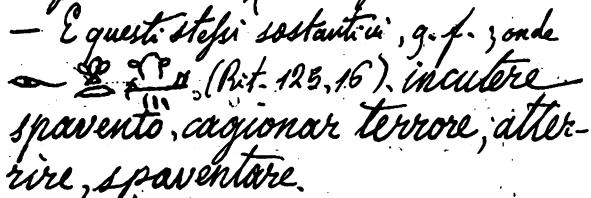 — E questi stessi sostantivi, g. f.; onde
(Rit. 125, 16). incutere
spavento, cagionar terrore, atter-
rire, spaventare.